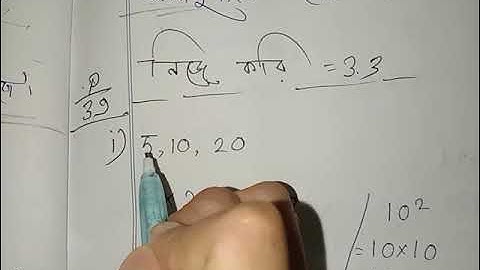 নিজে করি = 3.3
P
39
i) 5, 10, 20
2
10²
= 10×10